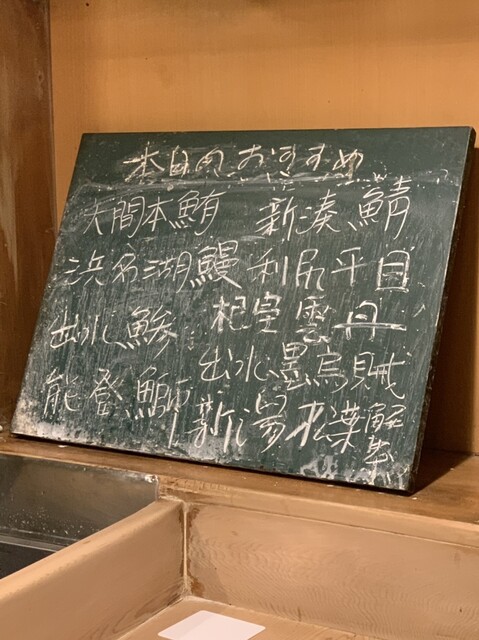 本日のおすすめ
大間本鮪 新湊鯖
浜名湖鰻 利尻平目
出水鯵 雲丹
能登鰤 出水墨烏賊
新潟松葉蟹